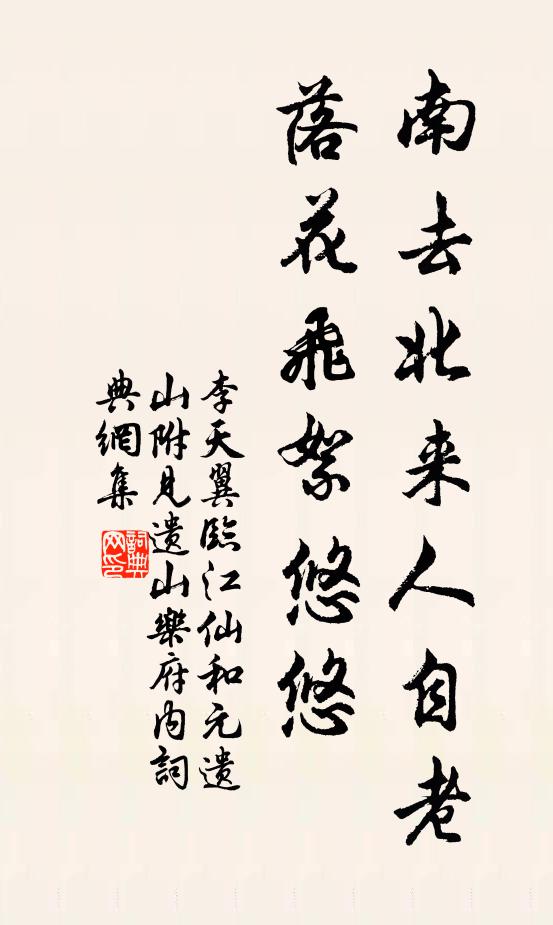 南去北来人自老
落花飛絮悠悠
李天翼臨江仙和元遺
山附見遺山樂府内詞
典網集
詞典
网印